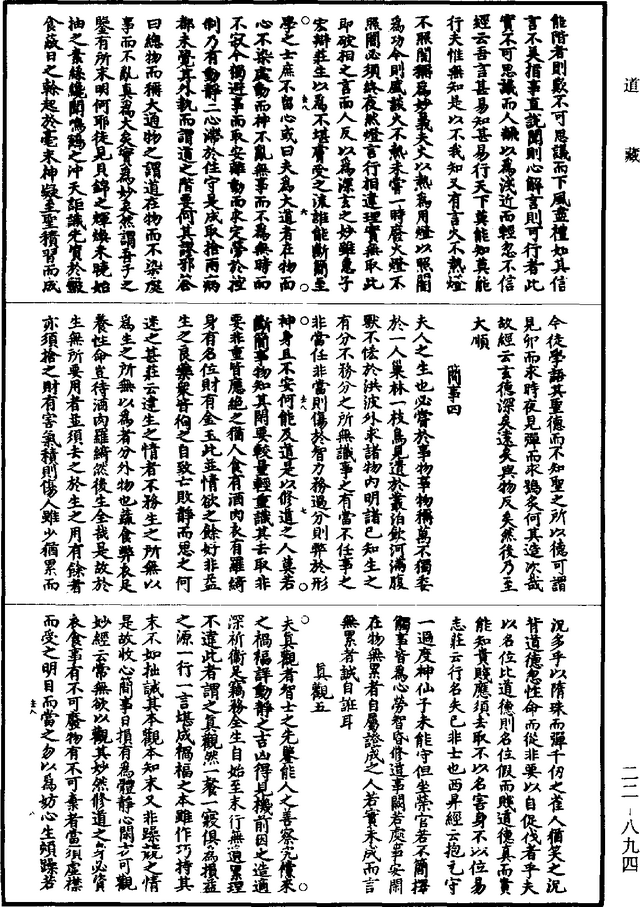 道藏
能階者則歎不可思議而下風盡禮如其信
言不美指事直說聞則心解言則可行者此
實不可思議而人翻以為淺近而輕忽不信
經云吾言甚易知甚易行天下莫能知莫能
行夫惟無知是以不我知又有言火不熱燈
不照闇稱為妙義夫火以熱為用燈以照闇
為功今則盛談火不熱未嘗一時廢火燈不
照闇必須終夜然燈言行相違理實無取此
即破相之言而人反以為深玄之妙雖惠子
宏辯莊生以為不堪膚受之流誰能斷簡至
學之士庶不留心或曰夫為大道者在物而
心不染處動而神不亂無事而不為無時而
不寂今獨避事而取安離動而求定勞於控
制乃有動靜二心滯於住守是成取捨兩病
都未覺其外執而謂道之階要何其謬邪答
曰總物而稱大通物之謂道在物而不染處
事而不亂真為大矣實為妙矣然謂吾子之
鑒有所未明何耶徒見貝錦之輝煥未曉始
抽之素絲纔聞鳴鶴之沖天詎識先資於鷇
食蔽日之榦起於毫末神凝至聖積習而成
今徒學語其聖德而不知聖之所以德可謂
見卵而求時夜見彈而求鴞炙何其造次哉
故經云玄德深矣遠矣與物反矣然後乃至
大順
簡事四
夫人之生也必嘗於事物事物稱萬不獨委
於一人巢林一枝鳥見遺於叢泊飲河滿腹
獸不恡於洪波外求諸物內明諸己知生之
有分不務分之所無識事之有當不任事之
非當任非當則傷於智力務過分則弊於形
神身且不安何能及道是以修道之人莫若
斷簡事物知其閑要較量輕重識其去取非
要非重皆應絕之猶人食有酒肉衣有羅綺
身有名位財有金玉此並情欲之餘好非益
生之良藥眾皆徇之自致亡敗靜而思之何
迷之甚莊云達生之情者不務生之所無以
為生之所無以為者分外物也蔬食弊衣足
養性命豈待酒肉羅綺然後生全哉是故於
生無所要用者並須去之於生之用有餘者
亦須捨之財有害氣積則傷人雖少猶累而
況多乎以隋珠而彈千仞之雀人猶笑之況
背道德忽性命而從非要以自促伐者乎夫
以名位比道德則名位假而賤道德真而貴
能知貴賤應須去取不以名害身不以位易
志莊云行名失己非士也西昇經云抱元守
一過度神仙子未能守但坐榮官若不簡擇
觸事皆為心勞智昏修道事闕若處事安閑
在物無累者自屬證成之人若實未成而言
無累者誠自誑耳
真觀五
夫真觀者智士之先鑒能人之善察究儻來
之禍福詳動靜之吉凶得見機前因之造適
深祈衛定功務全生自始至末行無遺累理
不違此者謂之真觀然一餐一寢俱為損益
之源一行一言堪成禍福之本雖作巧持其
末不如拙誡其本觀本知末又非躁競之情
是故收心簡事日損有為體靜心閑方可觀
妙經云常無欲以觀其妙然修道之身必資
衣食事有不可廢物有不可棄者當須虛襟
而受之明目而當之勿以為妨心生煩躁若
二二-八九四